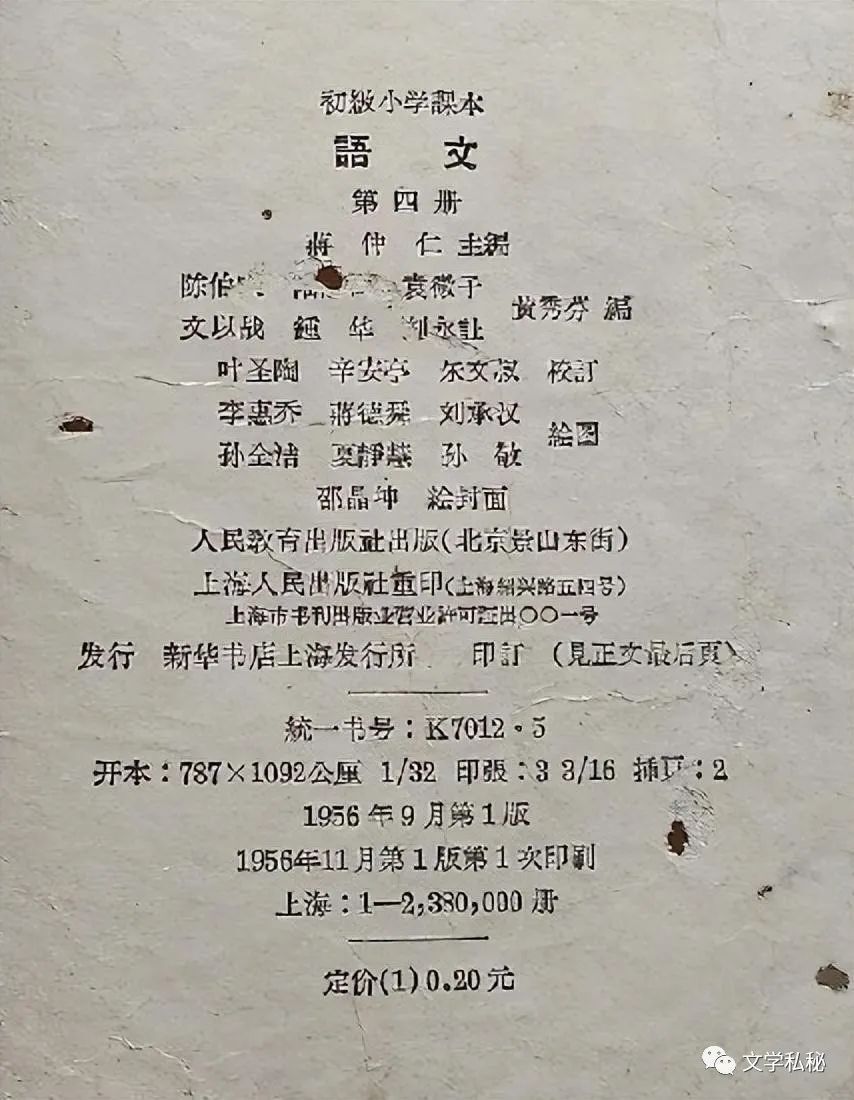 初級小学課本
語 文
第四册
蔣仲仁 主編
陈伯 袁微子
黄秀芬 編
文以战 鍾华 刘永讓
叶圣陶 辛安亭 朱文叔 校訂
李惠乔 蔣德舜 刘承汉
絵图
孙全洁 夏靜慈 孙敏
邵晶坤 絵封面
人民教育出版社出版(北京景山东街)
上海人民出版社重印(上海紹兴路五四号)
上海市书刊出版业营业許可証出〇〇一号
发行 新华书店上海发行所 印訂 (見正文最后頁)
統一书号：K7012·5
开本：787×1092公厘 1/32 印張：3 3/16 插頁：2
1956年9月第1版
1956年11月第1版第1次印刷
上海：1—2,380,000册
定价(1)0.20元
文学私秘